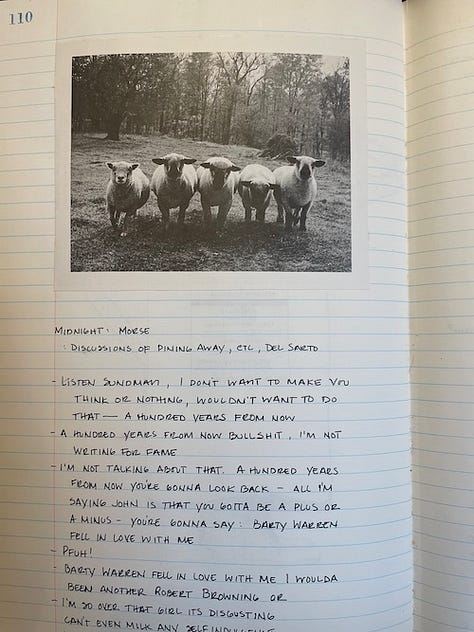 110
MIDNIGHT: MORSE
: DISCUSSIONS OF DINING AWAY, ETC, DEL SARTO
- LISTEN SUNDMAN, I DON'T WANT TO MAKE YOU
THINK OR NOTHING, WOULDN'T WANT TO DO
THAT — A HUNDRED YEARS FROM NOW
- A HUNDRED YEARS FROM NOW BULLSHIT, I'M NOT
WRITING FOR FAME
- I'M NOT TALKING ABOUT THAT. A HUNDRED YEARS
FROM NOW YOU'RE GONNA LOOK BACK - ALL I'M
SAYING JOHN IS THAT YOU GOTTA BE A PLUS OR
A MINUS - YOU'RE GONNA SAY: BARTY WARREN
FELL IN LOVE WITH ME
- PFUH!
- BARTY WARREN FELL IN LOVE WITH ME I WOULDA
BEEN ANOTHER ROBERT BROWNING OR
- I'M SO OVER THAT GIRL ITS DISGUSTING
CAN'T EVEN MILK ANY